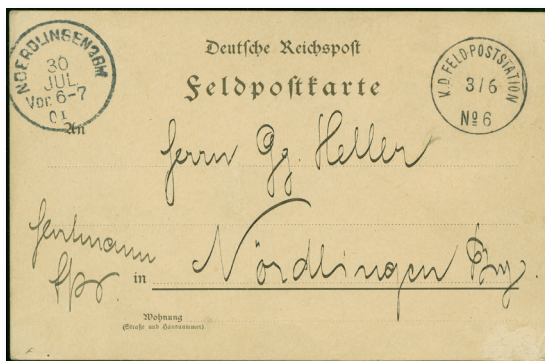 NOERDLINGEN 3 BHF
30
JUL.
Vor. 6-7
01
Deutsche Reichspost
Feldpostkarte
K.D. FELD-POSTSTATION
3/6
No 6
An
Herrn Gg. Heller
in Nördlingen
Wohnung
(Straße und Hausnummer)